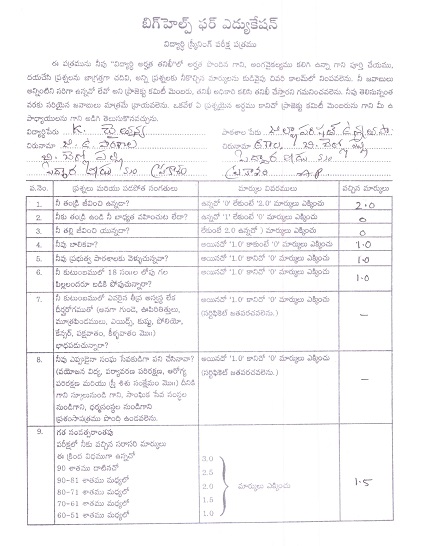 బిగ్‌హెల్ప్ ఫర్ ఎడ్యుకేషన్
విద్యార్థి స్క్రీనింగ్ పరీక్ష పత్రము
ఈ పత్రమును నీవు "విద్యార్థి అర్హత తనిఖీ"లో అర్హత పొందిన గాని, అంగవైకల్యము కలిగి ఉన్నా గాని పూర్తి చేయుము,
దయచేసి ప్రశ్నలను జాగ్రత్తగా చదివి, అన్ని ప్రశ్నలకు నీకొచ్చిన మార్కులను కుడివైపు చివరి కాలమ్‌లో నింపవలెను. నీ జవాబులు
అన్నింటిని సరిగా ఉన్నవో లేవో అని ప్రాజెక్టు కమిటీ మెంబరు, తనిఖీ అధికారి కలిసి తనిఖీ చేస్తారని గమనించవలెను. నీవు తెలిసినంత
వరకు సరియైన జవాబులు మాత్రమే వ్రాయవలెను. ఒకవేళ ఏ ప్రశ్నయైన అర్థము కానిచో ప్రాజెక్టు కమిటీ మెంబరును గాని మీ ఉ
పాధ్యాయులను గాని అడిగి తెలుసుకొనవచ్చును.
విద్యార్థిపేరు K. పాఠశాల పేరు
చిరునామా చిరునామా
ప్రకాశం A.P
వ.నెం. ప్రశ్నలు మరియు వివిధ సంగతులు మార్కుల వివరములు వచ్చిన మార్కులు
1. నీ తండ్రి జీవించి ఉన్నాడా? ఉన్నచో '0' లేకుంటే '2.0' మార్కులు ఎక్కించు 2.0
2. నీకు తండ్రి ఉండి నీ బాధ్యత వహించుట లేదా? ఉన్నచో '1' లేకుంటే '0' మార్కులు ఎక్కించు 0
3. నీ తల్లి జీవించి యున్నదా? లేకుంటే 2.0 ఉన్నచో 0 మార్కులు ఎక్కించు 0
4. నీవు బాలికవా? అయినచో '1.0' కాకుంటే '0' మార్కులు ఎక్కించు 1.0
5. నీవు ప్రభుత్వ పాఠశాలకు వెళ్చుచున్నావా? అయినచో '1.0' కానిచో '0' మార్కులు ఎక్కించు 1.0
6. నీ కుటుంబములో 18 సంలల లోపు గల
పిల్లలందరూ బడికి పోవుచున్నారా? అయినచో '1.0' కానిచో '0' మార్కులు ఎక్కించు 1.0
7. నీ కుటుంబములో ఎవరైన తీవ్ర అస్వస్థ లేక
దీర్ఘరోగముతో (అనగా గుండె, ఊపిరితిత్తులు,
మూత్రపిండములు, ఎయిడ్స్, కుష్ఠు, పోలియో,
కేన్సర్, పక్షవాతం, కీళ్ళవాతం మొ॥)
బాధపడుచున్నారా? అయినచో '1.0' కానిచో '0' మార్కులు ఎక్కించు
(సర్టిఫికెట్ జతపరచవలెను.) –
8. నీవు ఎప్పుడైనా సంఘ సేవకుడిగా పని చేసినావా?
(వయోజన విద్య, పర్యావరణ పరిరక్షణ, ఆరోగ్య
పరిరక్షణ మరియు స్త్రీ శిశు సంక్షేమం మొ॥) దీనికి
గాని స్కూలునుండి గాని, సాంఘిక సేవ సంస్థల
నుండిగాని, ధర్మసంస్థల నుండిగాని
ప్రశంసాపత్రము పొంది ఉండవలెను. అయినచో '1.0' కానిచో '0' మార్కులు ఎక్కించు
(సర్టిఫికెట్ జతపరచవలెను.) –
9. గత సంవత్సరాంతపు
పరీక్షలో నీకు వచ్చిన సరాసరి మార్కులు
ఈ క్రింది విధముగా ఉన్నచో
90 శాతము దాటినచో 3.0
90-81 శాతము మధ్యలో 2.5
80-71 శాతము మధ్యలో 2.0 మార్కులు ఎక్కించు 1.5
70-61 శాతము మధ్యలో 1.5
60-51 శాతము మధ్యలో 1.0